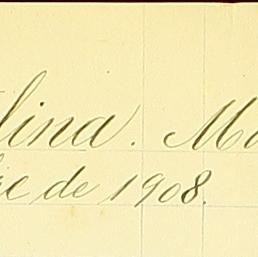 lina. Ma
re de 1908.